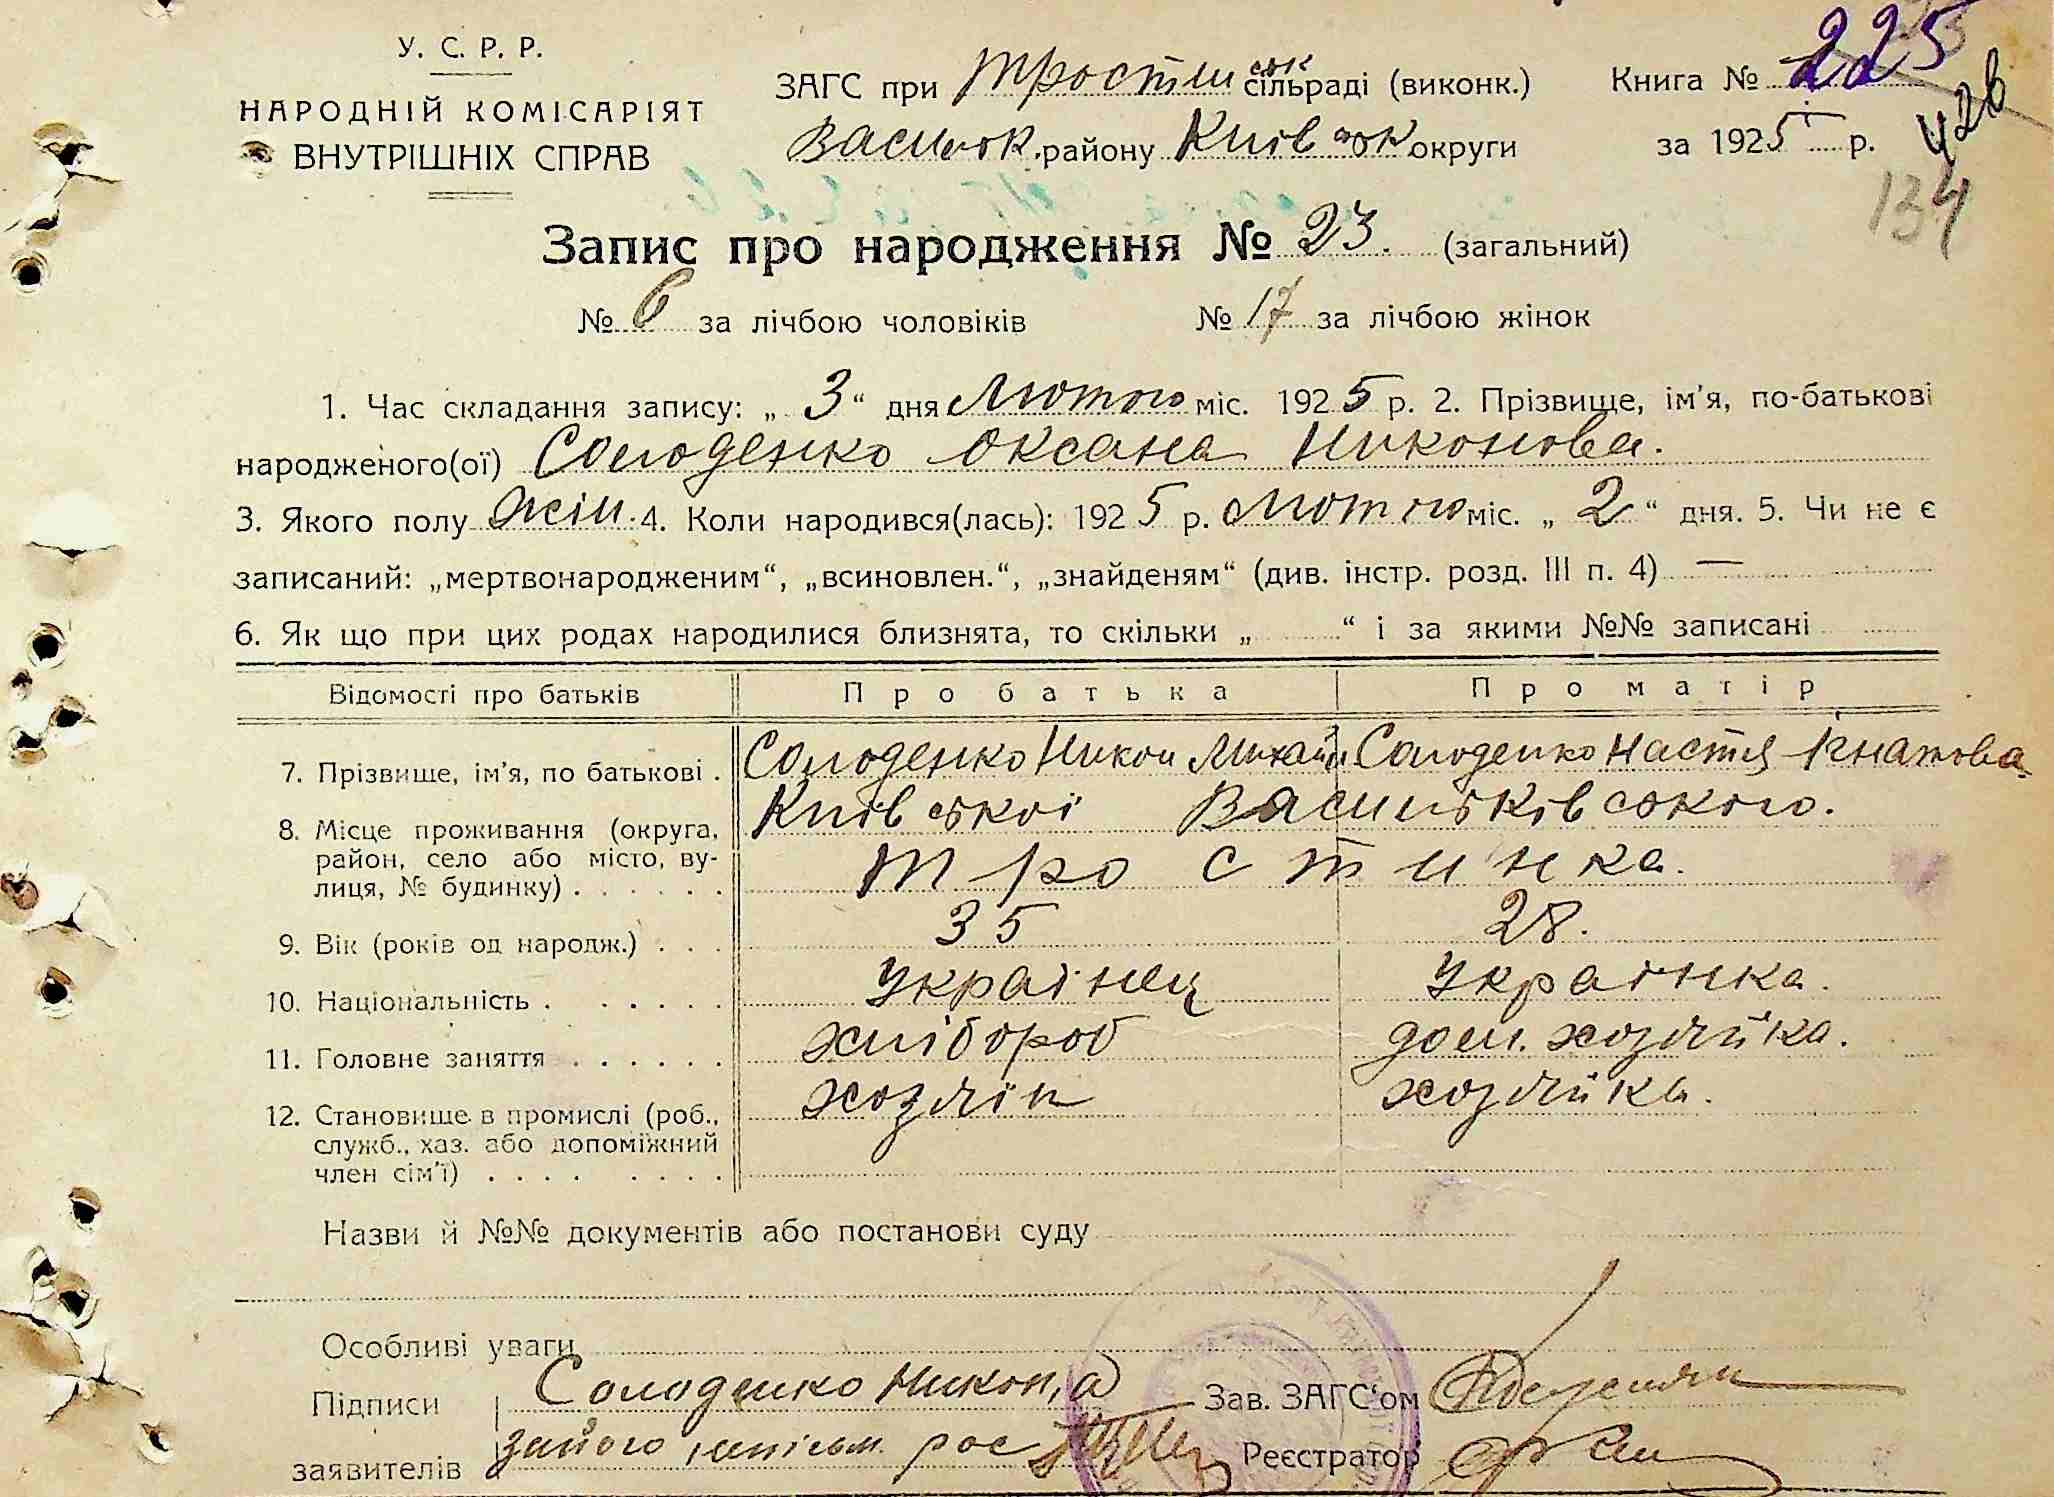 У. С. Р. Р.
НАРОДНІЙ КОМІСАРІЯТ
ВНУТРІШНІХ СПРАВ
ЗАГС при Тростинськ сільраді (виконк.)
Васильк. району Київськ округи
Книга № 225
за 1925 р.
426
134
Запис про народження № 23. (загальний)
№ 6 за лічбою чоловіків № 17 за лічбою жінок
1. Час складання запису: „ 3 “ дня Лютого міс. 1925 р. 2. Прізвище, ім'я, по-батькові
народженого(ої) Солоденко Оксана Никонова.
3. Якого полу жін. 4. Коли народився(лась): 1925 р. Лютого міс. „ 2 “ дня. 5. Чи не є
записаний: „мертвонародженим“, „всиновлен.“, „знайденям“ (див. інстр. розд. III п. 4) —
6. Як що при цих родах народилися близнята, то скільки „ “ і за якими №№ записані
Відомості про батьків Про батька Про матір
7. Прізвише, ім'я, по батькові . Солоденко Никон Михайл Солоденко Настя Ігнатова
8. Місце проживання (округа, Київської Васильківського.
район, село або місто, ву- Тростинка.
лиця, № будинку) . . . . . .
9. Вік (років од народж.) . . . 35 28.
10. Національність . . . . . . Українец Українка.
11. Головне заняття . . . . . . хлібороб дом. хозяйка.
12. Становище в промислі (роб., хозяїн хозяйка.
служб., хаз. або допоміжний
член сім'ї) . . . . . . . .
Назви й №№ документів або постанови суду
Особливі уваги
Підписи Солоденко Никон, а
заявителів за його рос
Зав. ЗАГС'ом
Реєстратор